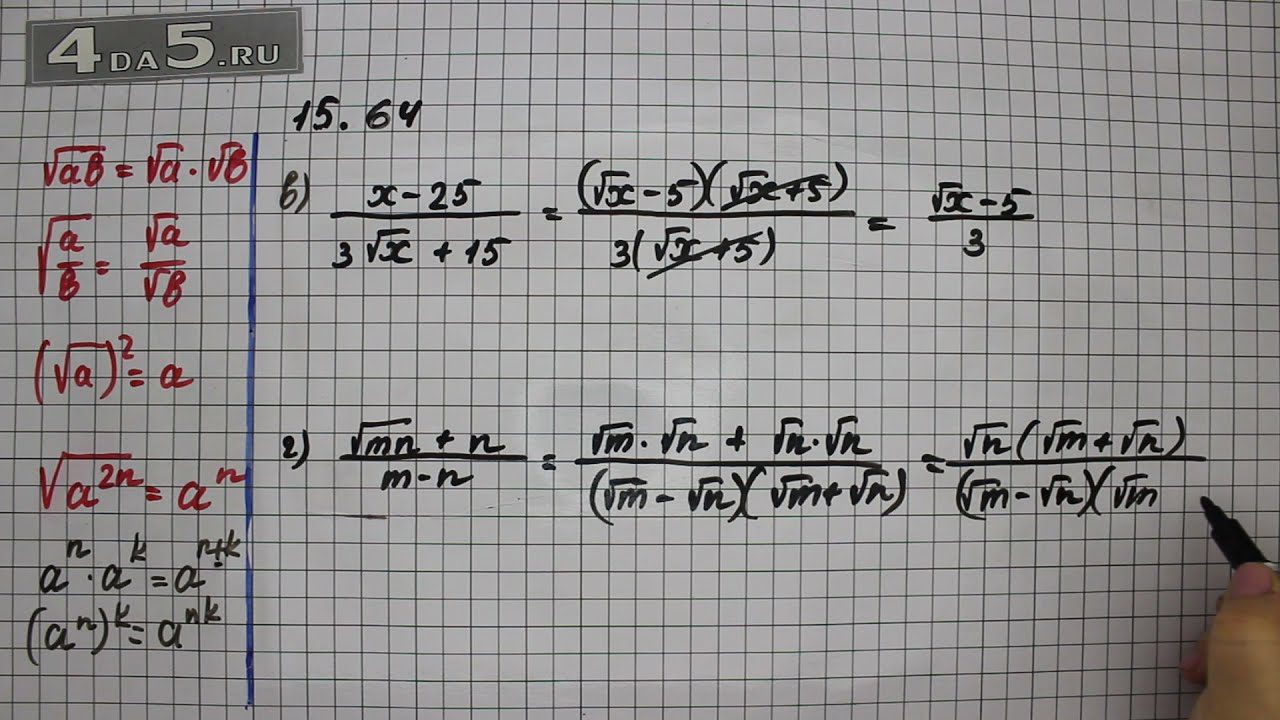 4DA5.RU
15.64
√ab = √a · √b
√(a/b) = √a/√b
(√a)² = a
√(a²ⁿ) = aⁿ
aⁿ · aᵏ = aⁿ⁺ᵏ
(aⁿ)ᵏ = aⁿᵏ
в) (x - 25)/(3√x + 15) = ((√x - 5)(√x + 5))/(3(√x + 5)) = (√x - 5)/3
г) (√mn + n)/(m - n) = (√m · √n + √n · √n)/((√m - √n)(√m + √n)) = (√n(√m + √n))/((√m - √n)(√m